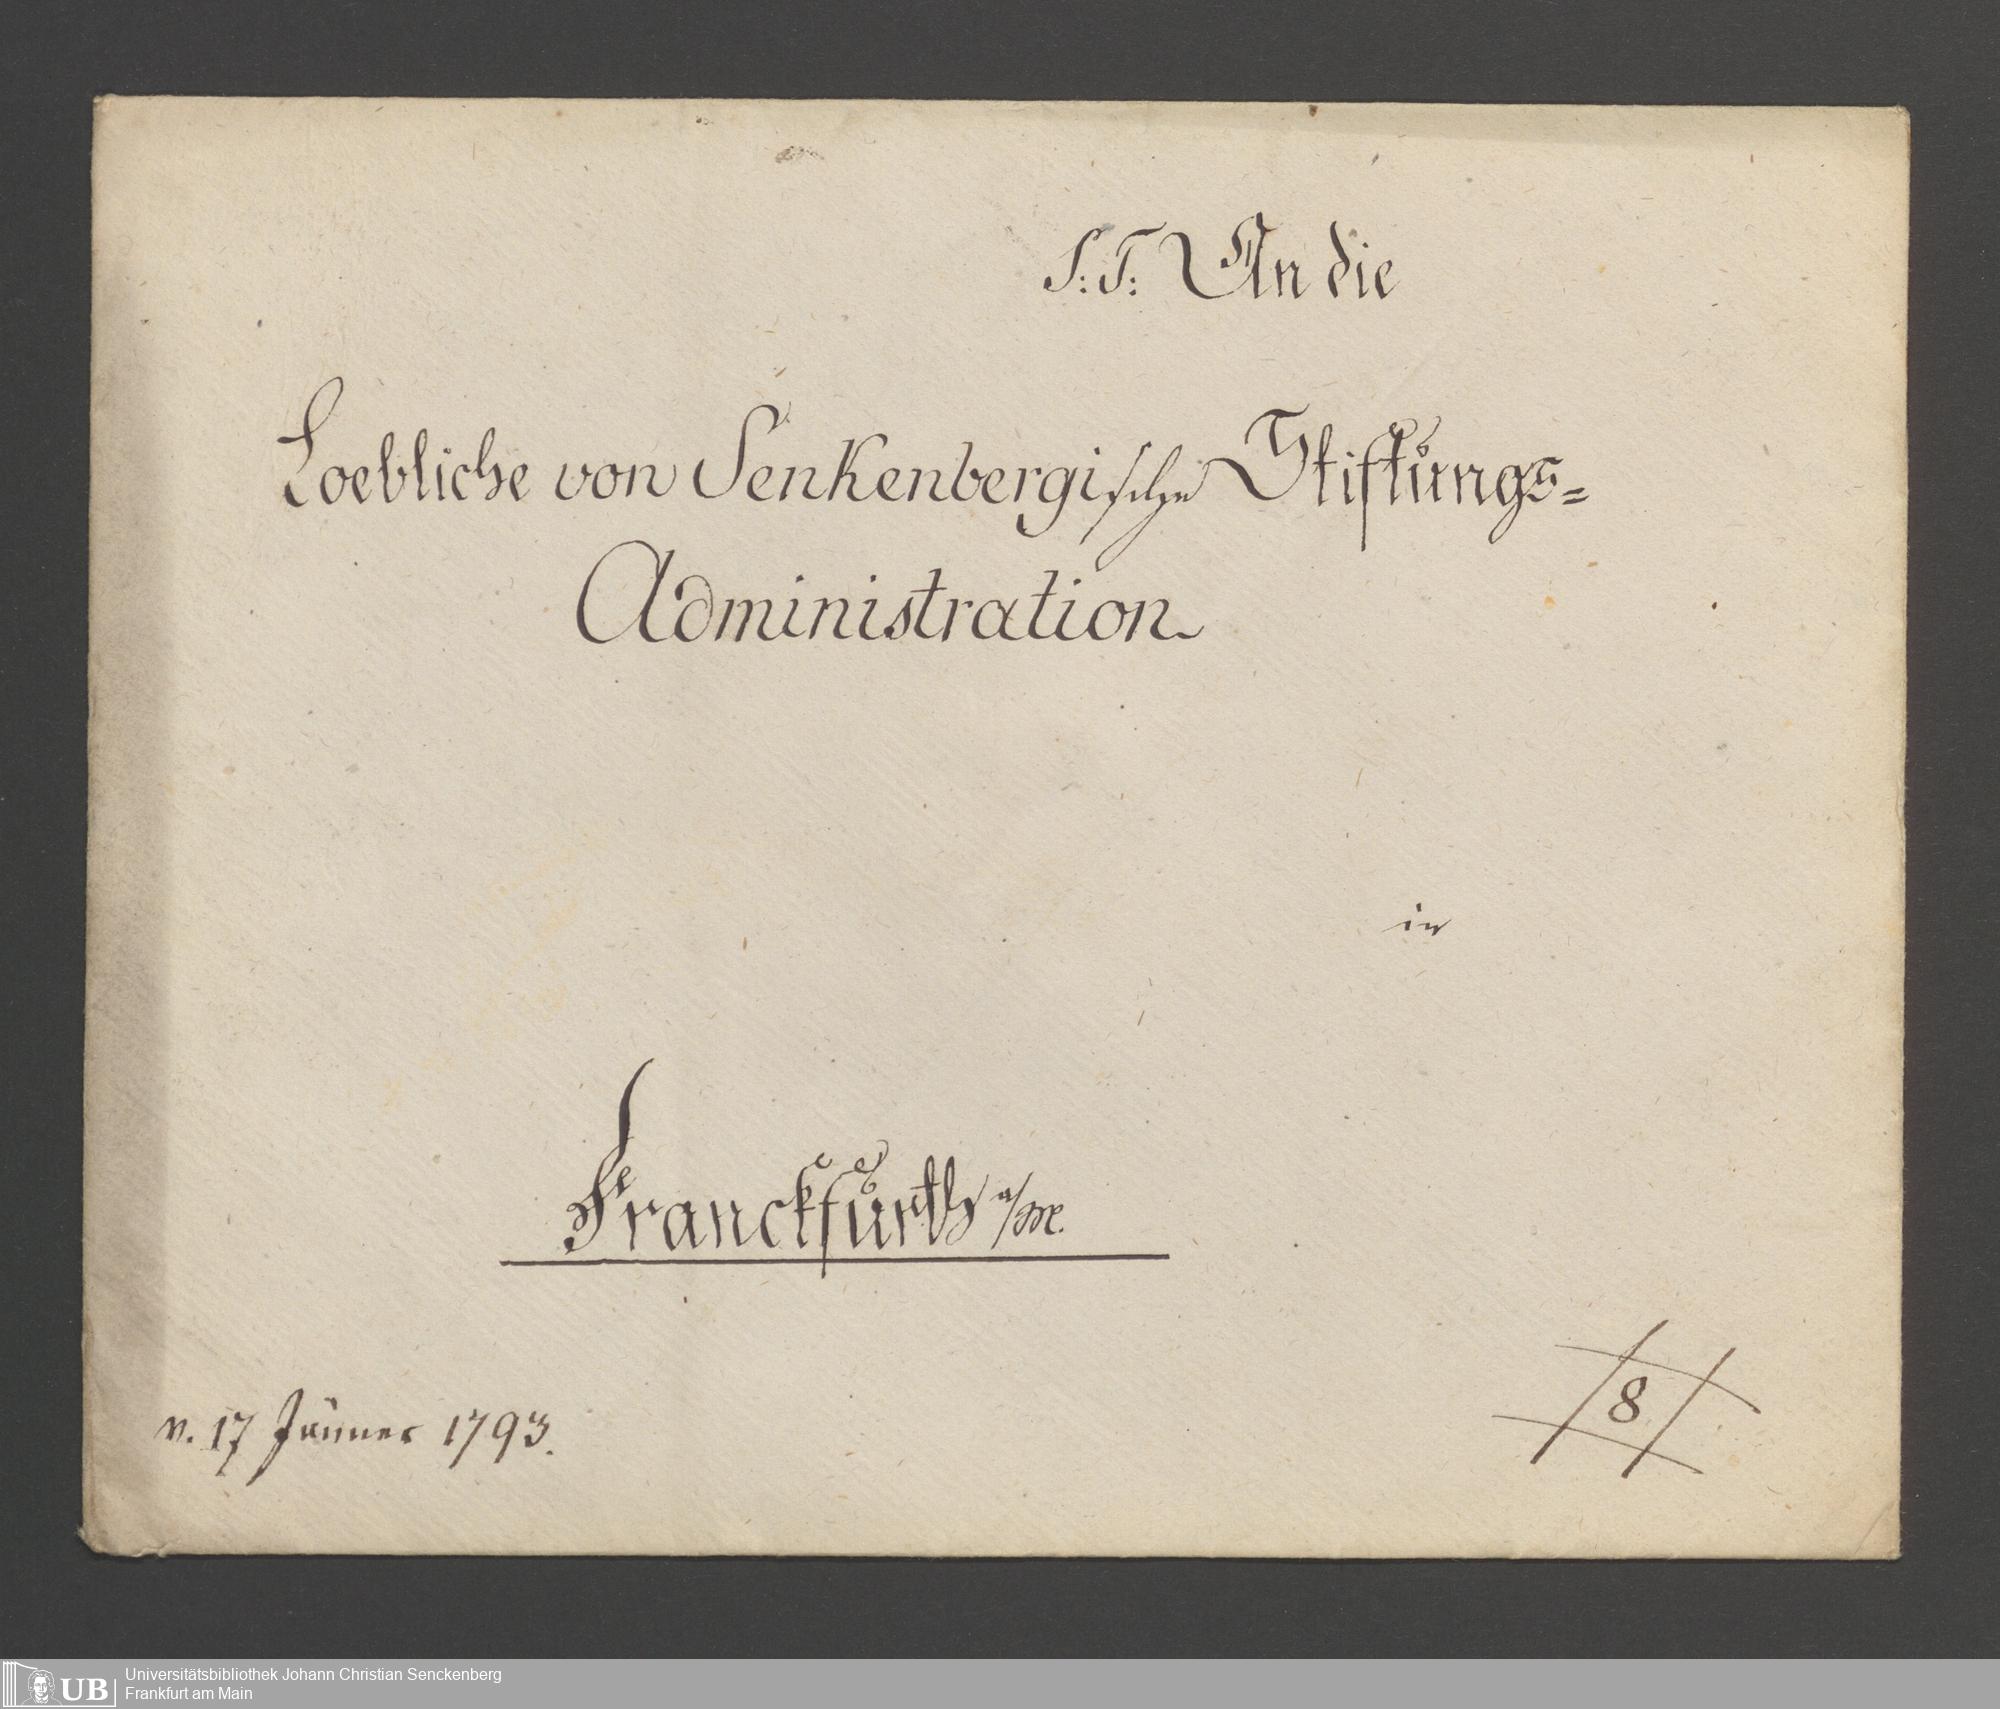 S: T: An die
Loebliche von Senkenbergische Stiftungs=
Administration
in
Franckfurth a/M.
v. 17 Jänner 1793.
8
UB
Universitätsbibliothek Johann Christian Senckenberg
Frankfurt am Main